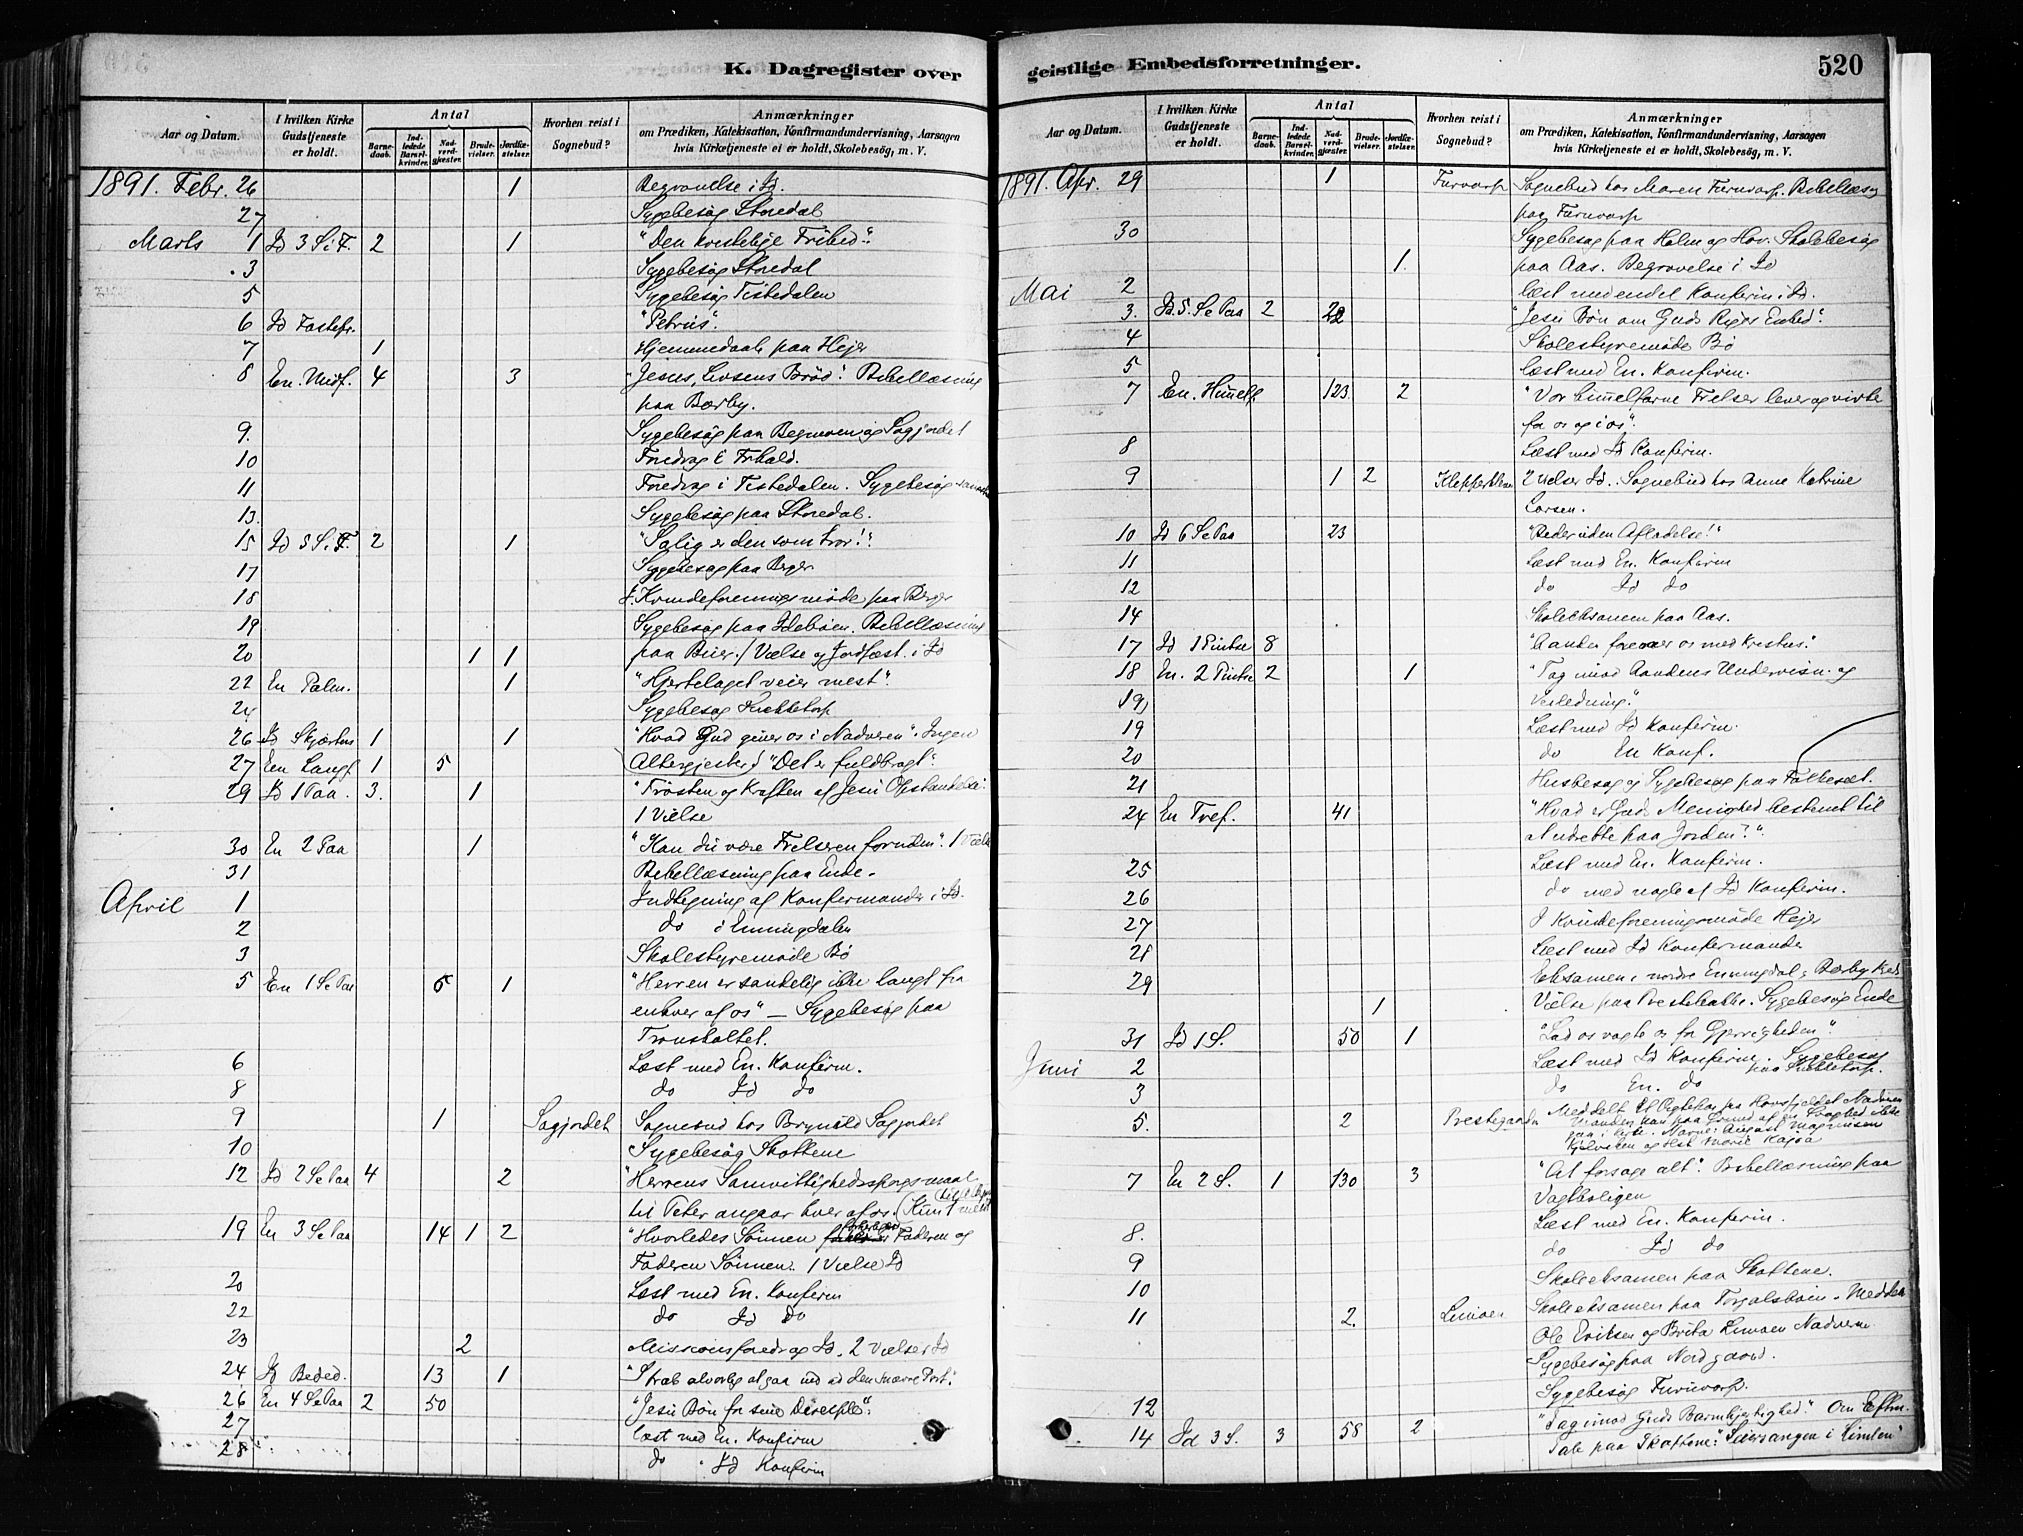 K. Dagregister over
Aar og Datum.
I hvilken Kirke Gudstjeneste er holdt.
Antal
Barne-daab.
Ind-ledede Barsel-kvinder.
Nad-verd-gjæster.
Brude-vielser.
Jordfæ-stelser.
Hvorhen reist i Sognebud?
Anmærkninger
om Prædiken, Katekisation, Konfirmandundervisning, Aarsagen
hvis Kirketjeneste ei er holdt, Skolebesög, m. V.
1891. Febr. 26 1 Begravelse i Id.
27 Sygebesög Stenedal
Marts 1 Id 3 S i F. 2 1 "Den kristelige Frihed".
3 Sygebesög Stenedal
5 Sygebesög Tistedalen
6 Id Fastepr. "Petrus".
7 1 Hjemmedaab paa Hejer
8 En. Midf. 4 3 "Jesus, Livsens Bröd". Bibellæsning
paa Bærby.
9. Sygebesög paa og Sagjordet
10 Foredrag i
11 Foredrag i Tistedalen. Sygebesög
13. Sygebesög paa Stenedal.
15 Id 5 S. i F. 2 1 "Salig er den som tror!".
17 Sygebesög paa Berger
18 Kvindeforeningsmöde paa Berger
19 Sygebesög paa Ideböen. Bibellæsning
20 1 1 paa Vielse og Jordfæst. i Id
22 En Palm. 1 "Hjertelaget veier mest".
24 Sygebesög
26 Id Skjærtors 1 1 "Hvad Gud giver os i Nadveren". Ingen
27 En Langf 1 5 Altergjester) "Det er fuldbragt".
29 Id 1 Paa. 3. 1 "Trösten og Kraften af Jesu Opstandelse".
1 Vielse
30 En 2 Paa 1 "Kan du være Frelseren foruden". 1 Vielse
31 Bibellæsning paa Ende.
April 1 Indtegning af Konfirmander i Id.
2 do i Enningdalen
3 Skolestyremöde Bö
5 En 1 S e Paa 5 1 "Herren er sandelig ikke langt fra
enhver af os" — Sygebesög paa
6 Læst med En. Konfirm.
8 do Id do
9 1 Sagjordet Sognebud hos Brynild Sagjordet
10 Sygebesög Skottene
12 Id 2 S e Paa 4 2 "Herrens Samvittighedsspörgsmaal
til Peter angaar hver af os.
19 En 3 S e Paa 14 1 2 "Hvorledes Sönnen Faderen og
Faderen Sönnen. 1 Vielse Id
20 Læst med En. Konfirm
22 do Id do
23 2 Missionsforedrag Id. 2 Vielser Id
24 Id Beded. 13 1 "Stræb alvorlig at gaa ind ad den snævre Port".
26 En 4 S e Paa 2 50 "Jesu Bön for sine Disciple".
27 læst med En. Konfirm
28 do Id Konfirm
geistlige Embedsforretninger.
520
Aar og Datum.
I hvilken Kirke Gudstjeneste er holdt.
Antal
Barne-daab.
Ind-ledede Barsel-kvinder.
Nad-verd-gjæster.
Brude-vielser.
Jordfæ-stelser.
Hvorhen reist i Sognebud?
Anmærkninger
om Prædiken, Katekisation, Konfirmandundervisning, Aarsagen
hvis Kirketjeneste ei er holdt, Skolebesög, m. V.
1891. Apr. 29 1 Furuvarp Sognebud hos Maren Furuvarp. Bibellæsn
paa Furuvarp
30 Sygebesög paa Holm og Hov. Skolebesög
1. paa Aas. Begravelse i Id
Mai 2 læst med endel Konfirm. i Id.
3. Id. 5. S e Paa 2 22 "Jesu Bön om Guds Riges Enhed".
4 Skolestyremöde Bö
5 læst med En. Konfirm.
7 En. Himelf 123 2 "Vor himmelfarne Frelser lever og virker
for os og i os".
8 Læst med Id Konfirm.
9 1 2 2 Vielser Id. Sognebud hos Anne Katrine
Larsen.
10 Id 6 S e Paa 23 "Beder uden Afladelse!"
11 Læst med En. Konfirm
12 do Id do
14 Skoleeksamen paa Aas.
17 Id 1 Pintse 8 "Aanden forener os med Kristus".
18 En. 2 Pintse 2 1 "Tag imod Aandens Undervisn. og
19) Veiledning".
19 Læst med Id Konfirm.
20 do En Konf.
21 Husbesög og Sygebesög paa Folkesæt.
24 En Tref. 41 "Hvad er Guds Menighed bestemt til
at udrette paa Jorden?".
25 Læst med En. Konfirm.
26 do med nogle af Id Konfirm.
27 I Kvindeforeningsmöde Hejer
28 Læst med Id Konfirmander
29 Eksamen i nordre Enningdal, Bærby Kreds
1 Vielse paa Prestebakke. Sygebesög Ende
31 Id 1 S. 50 1 "Lad os vogte os for Gjerrigheden".
Juni 2 Læst med Id Konfirm. Sygebesög
3 do En. do
5. 2 Prestegaarden Meddelt et Ægtepar fra Nadveren
7 En 2 S. 1 130 3 "At forsage alt". Bibellæsning paa
Vagtboligen
8. Læst med En. Konfirm.
9 do Id do
10 Skoleeksamen paa Skottene.
11 2. Limoen Skoleeksamen paa Torgalsböen. Meddelt
Ole Eriksen og Brita Limoen Nadveren
Sygebesög paa Nordgaard.
12 Sygebesög Furuvarp.
14 Id 3 S. 3 58 2 "Tag imod Guds Barmhjertighed." Om Eftm.
Tale paa Skottene: